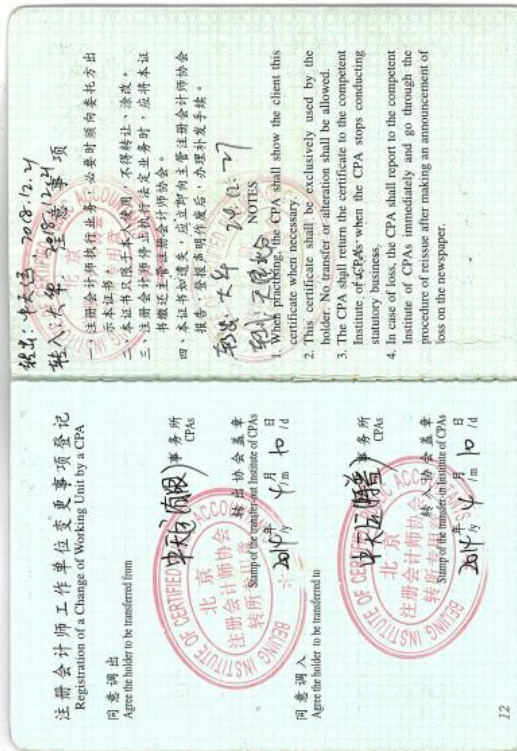 注册会计师工作单位变更事项登记
Registration of a Change of Working Unit by a CPA
同意调出
Agree the holder to be transferred from
中天运(有限) 事务所
CPAs
BEIJING INSTITUTE OF CERTIFIED PUBLIC ACCOUNTANTS
北京
注册会计师协会
转所专用章
转出协会盖章
Stamp of the transfer-out Institute of CPAs
2014年 4月 10日
/y /m /d
同意调入
Agree the holder to be transferred to
中天运(特普) 事务所
CPAs
BEIJING INSTITUTE OF CERTIFIED PUBLIC ACCOUNTANTS
北京
注册会计师协会
转所专用章
转入协会盖章
Stamp of the transfer-in Institute of CPAs
2014年 4月 10日
/y /m /d
12
转出:中天运 2018.12.21
转入:大华 2018.12.21
注意事项
一、注册会计师执行业务,必要时须向委托方出
示本证书。
二、本证书只限于本人使用,不得转让、涂改。
三、注册会计师停止执行法定业务时,应将本证
书缴还主管注册会计师协会。
四、本证书如遗失,应立即向主管注册会计师协会
报告,登报声明作废后,办理补发手续。
转出:大华
转入:
NOTES
1. When practising, the CPA shall show the client this
certificate when necessary.
2. This certificate shall be exclusively used by the
holder. No transfer or alteration shall be allowed.
3. The CPA shall return the certificate to the competent
Institute of CPAs when the CPA stops conducting
statutory business.
4. In case of loss, the CPA shall report to the competent
Institute of CPAs immediately and go through the
procedure of reissue after making an announcement of
loss on the newspaper.